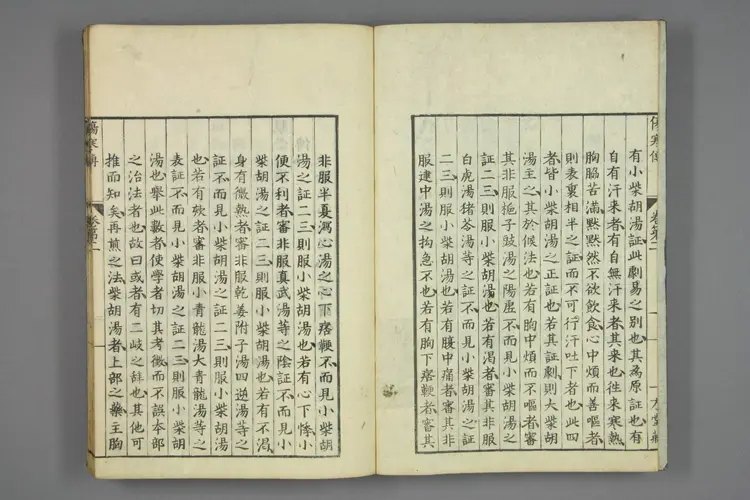 有小柴胡湯証此劇易之別也其為原証也有
自有汗來者有自無汗来者其來也徃来寒熱
胸脇苦滿黙黙然不欲飲食心中煩而善嘔者
則表裏相半之証而不可行汗吐下者也此四
者皆小柴胡湯之正証也若其証劇則大柴胡
湯主之其於候法也若有胸中煩而不嘔者審
其非服梔子豉湯之陽虛不而見小柴胡湯之
証二三則服小柴胡湯也若有渇者審其非服
白虎湯猪苓湯等之証不而見小柴胡湯之証
二三則服小柴胡湯也若有腹中痛者審其非
服建中湯之拘急不也若有胸下痞鞕者審其
非服半夏瀉心湯之心下痞鞕不而見小柴胡
湯之証二三則服小柴胡湯也若有心下悸小
便不利者審非服真武湯等之陰証不而見小
柴胡湯之証二三則服小柴胡湯也若有不渇
身有微熱者審非服乾姜附子湯四逆湯等之
証不而見小柴胡湯之証二三則服小柴胡湯
也若有欬者審非服小青龍湯大青龍湯等之
表証不而見小柴胡湯之証二三則服小柴胡
湯也擧此數者使學者切其考徴而不誤本部
之治法者也故曰或者有二岐之辞也其他可
推而知矣再煎之法柴胡湯者上部之藥主胸